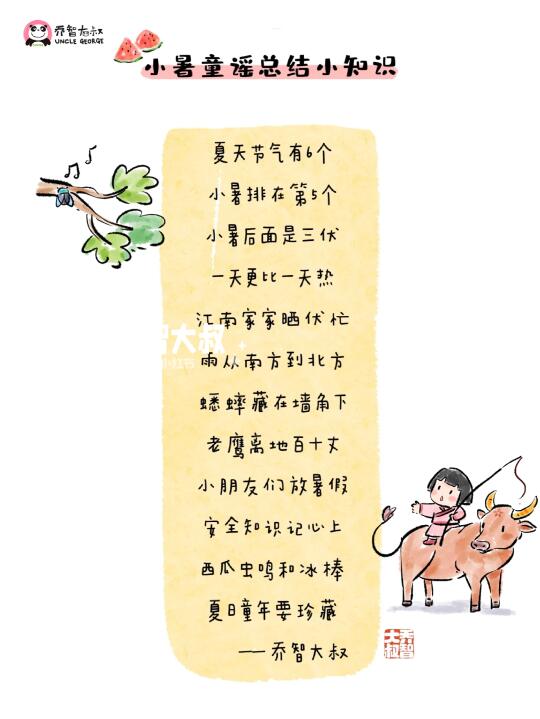 乔智大叔
UNCLE GEORGE
小暑童谣总结小知识
夏天节气有6个
小暑排在第5个
小暑后面是三伏
一天更比一天热
江南家家晒伏忙
雨从南方到北方
蟋蟀藏在墙角下
老鹰离地百十丈
小朋友们放暑假
安全知识记心上
西瓜虫鸣和冰棒
夏日童年要珍藏
——乔智大叔
智大叔
小红书
乔智大叔